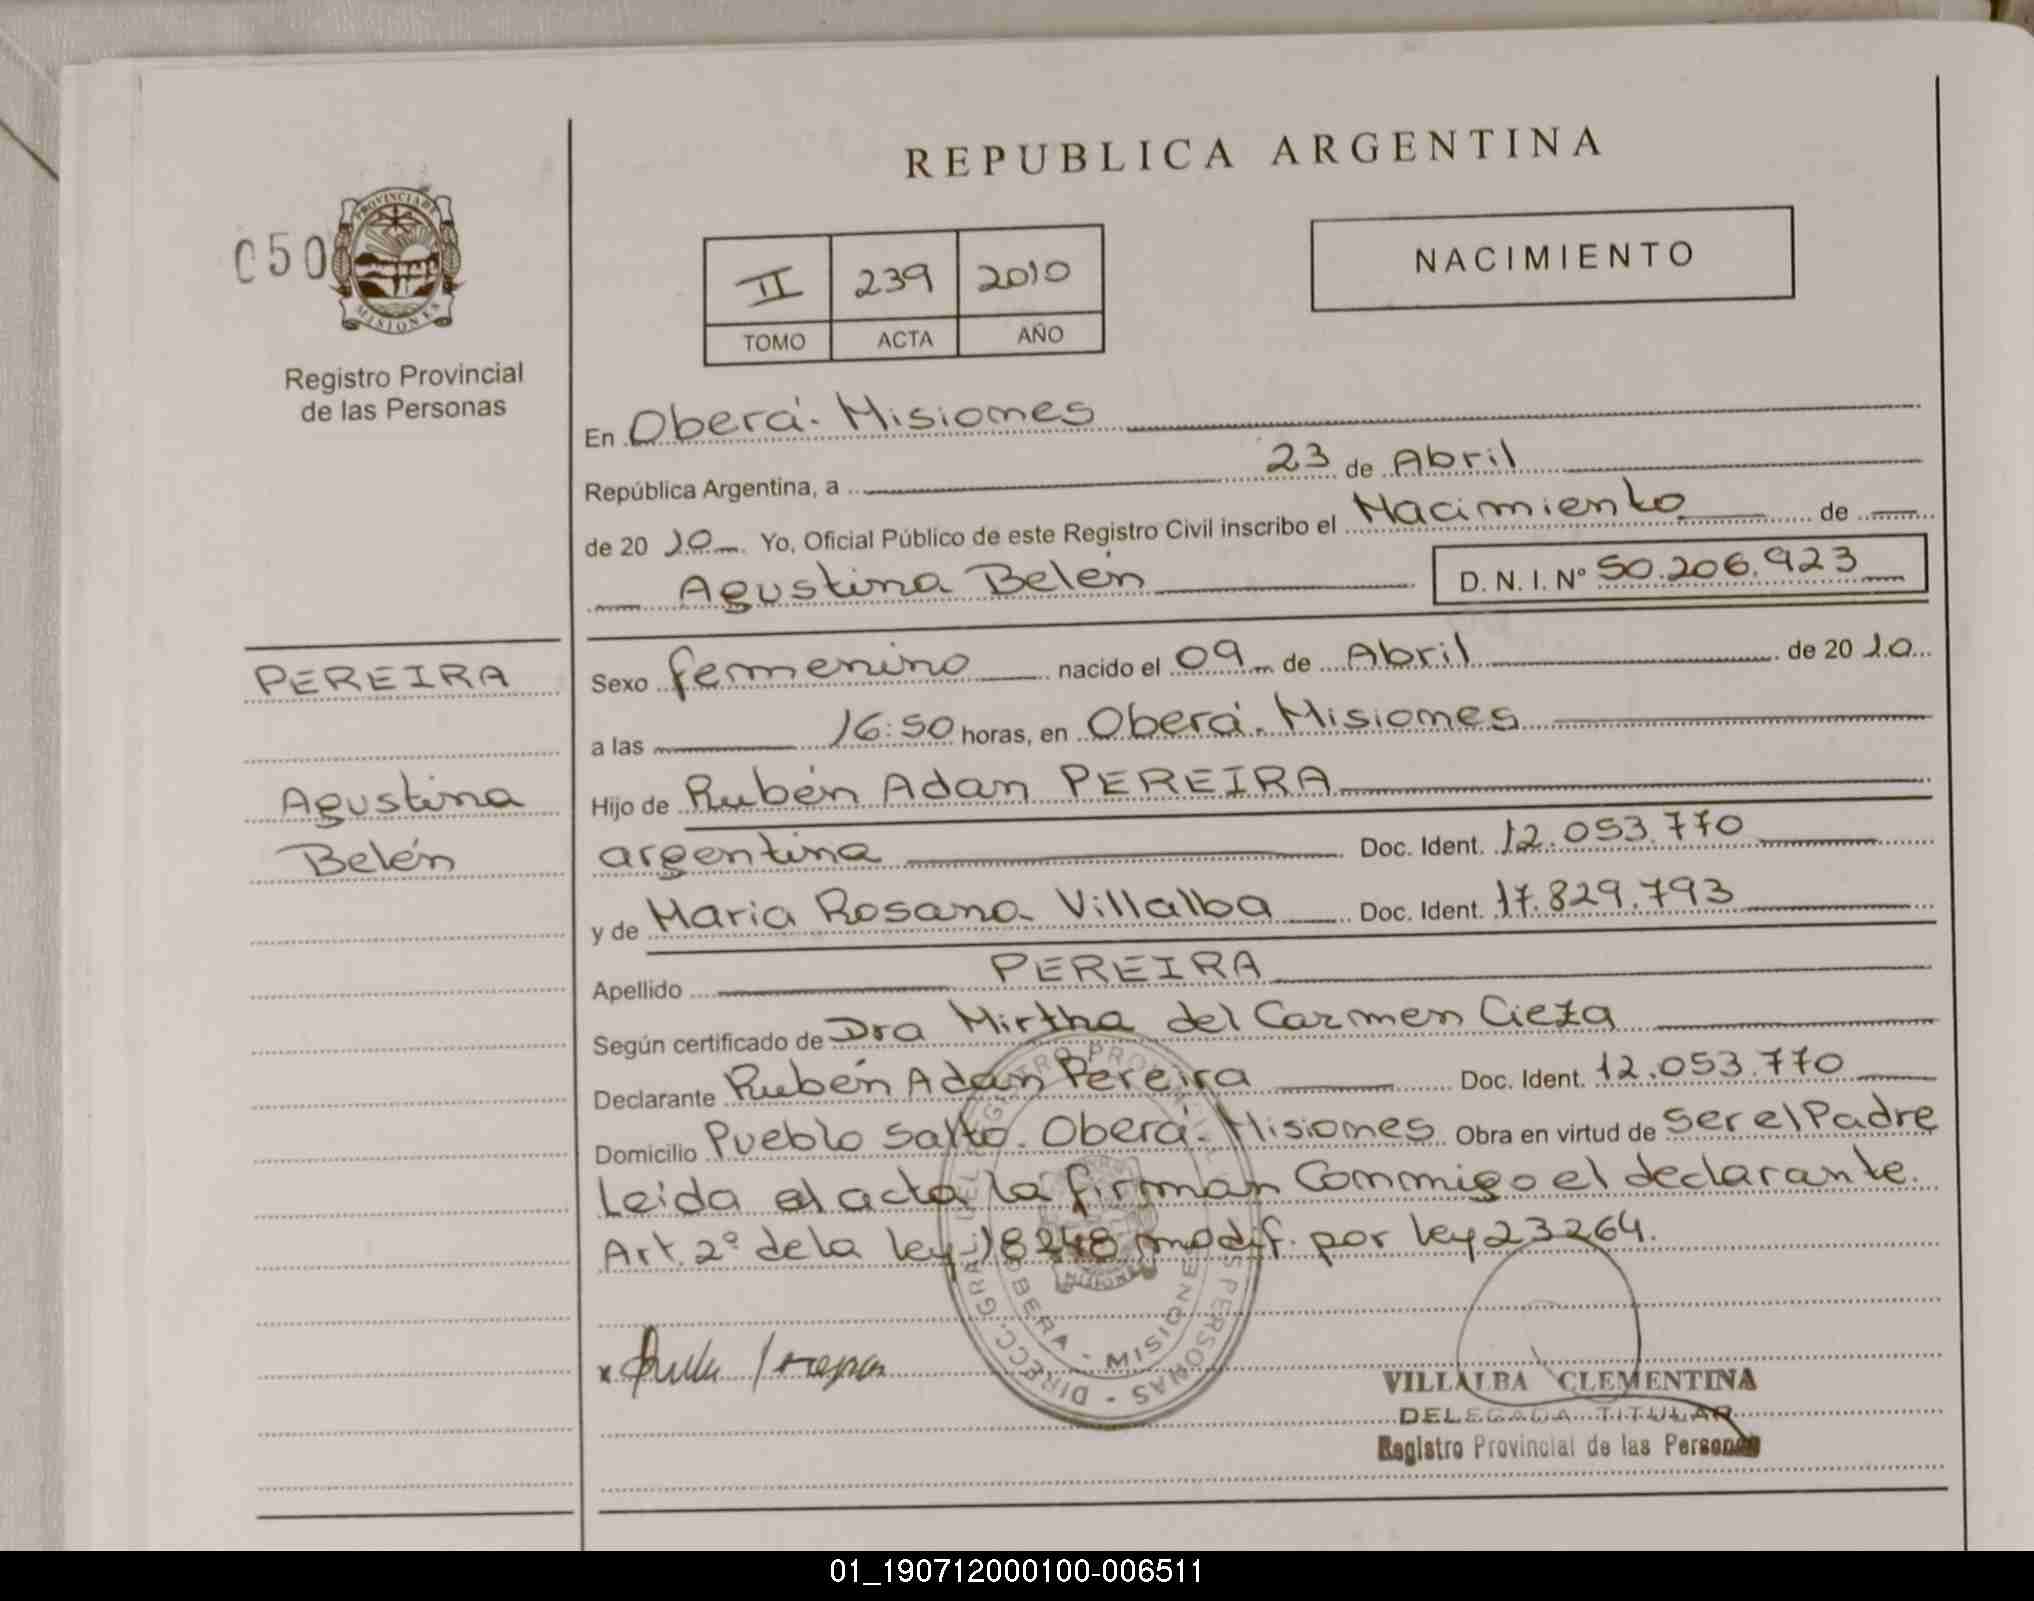 REPUBLICA ARGENTINA
050
PROVINCIA DE
MISIONES
Registro Provincial
de las Personas
II 239 2010
TOMO ACTA AÑO
NACIMIENTO
En Oberá. Misiones
República Argentina, a 23 de Abril
de 2010 Yo, Oficial Público de este Registro Civil inscribo el Nacimiento de
Agustina Belén D. N. I. N° 50.206.923
PEREIRA
Agustina
Belén
Sexo femenino nacido el 09 de Abril de 2010
a las 16:50 horas, en Oberá. Misiones
Hijo de Rubén Adan PEREIRA
argentina Doc. Ident. 12.053.770
y de Maria Rosana Villalba Doc. Ident. 17.829.793
Apellido PEREIRA
Según certificado de Dra Mirtha del Carmen Cieza
Declarante Rubén Adan Pereira Doc. Ident. 12.053.770
Domicilio Pueblo Salto. Oberá. Misiones Obra en virtud de ser el Padre
Leida el acta la firman Conmigo el declarante.
Art. 2° de la ley 18248 modif. por ley 23264.
DIRECC. GRAL. DEL REGISTRO PROVINCIAL DE LAS PERSONAS
OBERA - MISIONES
VILLALBA CLEMENTINA
DELEGADA TITULAR
Registro Provincial de las Personas
01_190712000100-006511